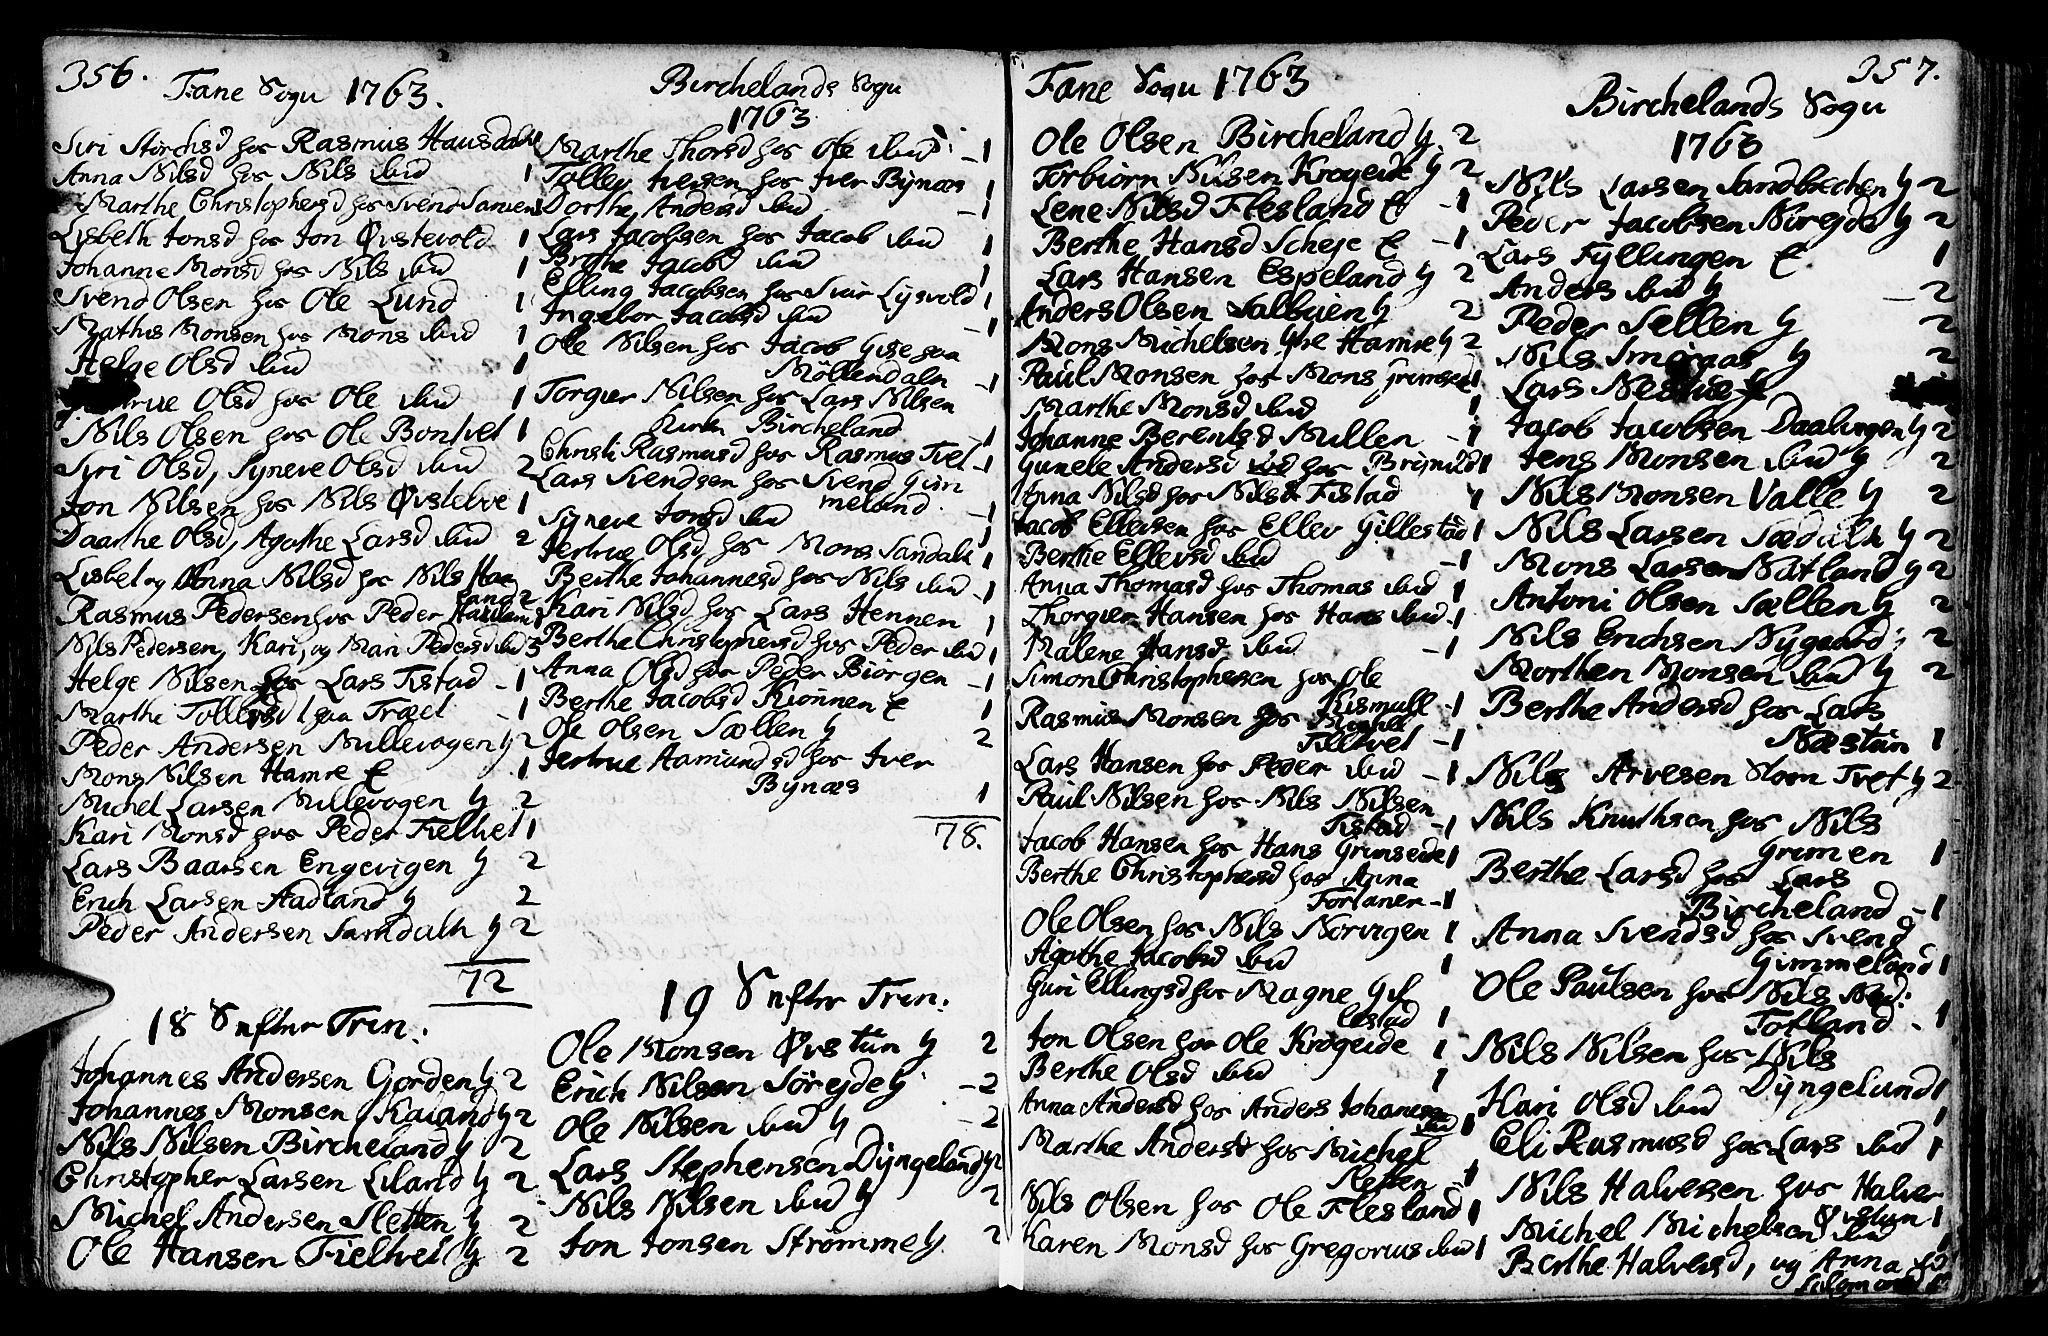 356.
Fane Sogn 1763.
Siri Storchsd hos Rasmus Hausdal
Anna Nilsd hos Nils ibid 1
Marthe Christophersd hos Svend Samens 1
Lisbeth Jonsd hos Jon Øvstevold 1
Johanne Monsd hos Nils ibid 1
Svend Olsen hos Ole Lund 1
Mathis Monsen hos Mons ibid 1
Helge Olsd ibid 1
Olsd hos Ole ibid 1
Nils Olsen hos Ole Bontvet 1
Siri Olsd, Syneve Olsd ibid 2
Jon Nilsen hos Nils Øvstebve 1
Daarthe Olsd, Agathe Larsd ibid 2
Lisbet og Anna Nilsd hos Nils Hae
land 2
Rasmus Pedersen hos Peder Haukeland 1
Nils Pedersen, Kari, og Mari Pedersd ibid 3
Helge Nilsen hos Lars Tistad - 1
Marthe Tollevsd paa Træet - 1
Peder Andersen Nullevogen y 2
Mons Nilsen Hamre E 1
Michel Larsen Nullevogen y 2
Kari Monsd hos Peder Tieltvet 1
Lars Baarsen Engevigen y 2
Erich Larsen Aadland y 2
Peder Andersen Samdalh y 2
72
18 S. efter Trin:
Johannes Andersen Gorden y 2
Johannes Monsen Kaland y 2
Nils Nilsen Bircheland y 2
Christopher Larsen Liland y 2
Michel Andersen Sletten y 2
Ole Hansen Tieltvet y 2
Birchelands Sogn
1763.
Marthe Thorsd hos Ole ibid: - 1
Tollev Iversen hos Iver Bynæs 1
Dorthe Andersd ibid - 1
Lars Jacobsen hos Jacob ibid 1
Brithe Jacobsd ibid 1
Elling Jacobsen hos Siur Lysvold 1
Ingebor Jacobsd ibid - 1
Ole Nilsen hos Jacob Gise paa
Möllendaln - 1
Torgier Nilsen hos Lars Nilsen
Kirch Bircheland - 1
Christi Rasmusd hos Rasmus Tvet - 1
Lars Svendsen hos Svend Gim
meland. - 1
Syneve Jonsd ibid 1
Jertrue Olsd hos Mons Sandalh 1
Berthe Johannesd hos Nils ibid - 1
Kari Nilsd hos Lars Hennen 1
Berthe Christophersd hos Peder ibid 1
Anna Olsd hos Peder Biörgen - 1
Berthe Jacobsd Kiönnen E 1
Ole Olsen Sællen y 2
Jertrue Aamundsd hos Iver
Bynæs 1
78.
19 S. efter Trin:
Ole Monsen Øvstun y 2
Erich Nilsen Sørejde y - 2
Ole Nilsen ibid y - 2
Lars Stephensen Dyngeland y 2
Nils Nilsen ibid y 2
Jon Jonsen Strømme y. 2
357.
Fane Sogn 1763
Ole Olsen Bircheland y. 2
Torbiörn Nilsen Krogeide y 2
Lene Nilsd Flesland E - 1
Berthe Hansd Scheje E - 1
Lars Hansen Espeland y 2
Anders Olsen Salbuen y 2
Mons Michelsen Yre Hamre y 2
Paul Monsen hos Mons Grimseid 1
Marthe Monsd ibid 1
Johanne Berentsd Nullen - 1
Gunele Andersd hos Brynild 1
Anna Nilsd hos Nils Tistad 1
Jacob Ellevsen hos Ellev Gillestad 1
Berthe Ellevsd ibid - 1
Anna Thomasd hos Thomas ibid 1
Thorgier Hansen hos Hans ibid - 1
Malene Hansd ibid - 1
Simon Christophersen hos Ole
Kismull - 1
Rasmus Monsen hos
Tilltvet - 1
Lars Hansen hos Peder ibid - 1
Paul Nilsen hos Nils Nilsen
Tistad - 1
Jacob Hansen hos Hans Grimseide 1
Berthe Christophersd hos Anna
Fortaner - 1
Ole Olsen hos Nils Norvigen 1
Agathe Jacobsd ibid 1
Guri Ellingsd hos Magne Gil
lestad 1
Jon Olsen hos Ole Krogeide 1
Berthe Olsd ibid 1
Anna Andersd hos Anders Johannesen
ibid 1
Marthe Andersd hos Michel
Sletten 1
Nils Olsen hos Ole Flesland 1
Karen Monsd hos Gregorius ibid 1
Birchelands Sogn
1763
Nils Larsen Sandbrechen y 2
Peder Jacobsen Norejde y 2
Lars Fyllingen E 1
Anders ibid y - 2
Peder Sellen y 2
Nils Smöraas y 2
Lars Nestue E
Jacob Jacobsen Daalingen y 2
Jens Monsen ibid y 2
Nils Monsen Valle y 2
Nils Larsen Sædalh y 2
Mons Larsen Natland y 2
Antoni Olsen Sællen y 2
Nils Erichsen Nygaard y 2
Morthen Monsen ibid y 2
Berthe Andersd hos Lars
Næstun 1
Nils Arvesen Slom Tvet y 2
Nils Knuthsen hos Nils
Grimen 1
Berthe Larsd hos Lars
Bircheland - 1
Anna Svendsd hos Svend
Gimmeland 1
Ole Paulsen hos Nils Ned:
Totland - 1
Nils Nilsen hos Nils
Dyngeland 1
Kari Olsd ibid 1
Eli Rasmusd hos Lars ibid 1
Nils Halvesen hos Halver
Øvstun 1
Michel Michelsen ibid 1
Berthe Halversd, og Anna